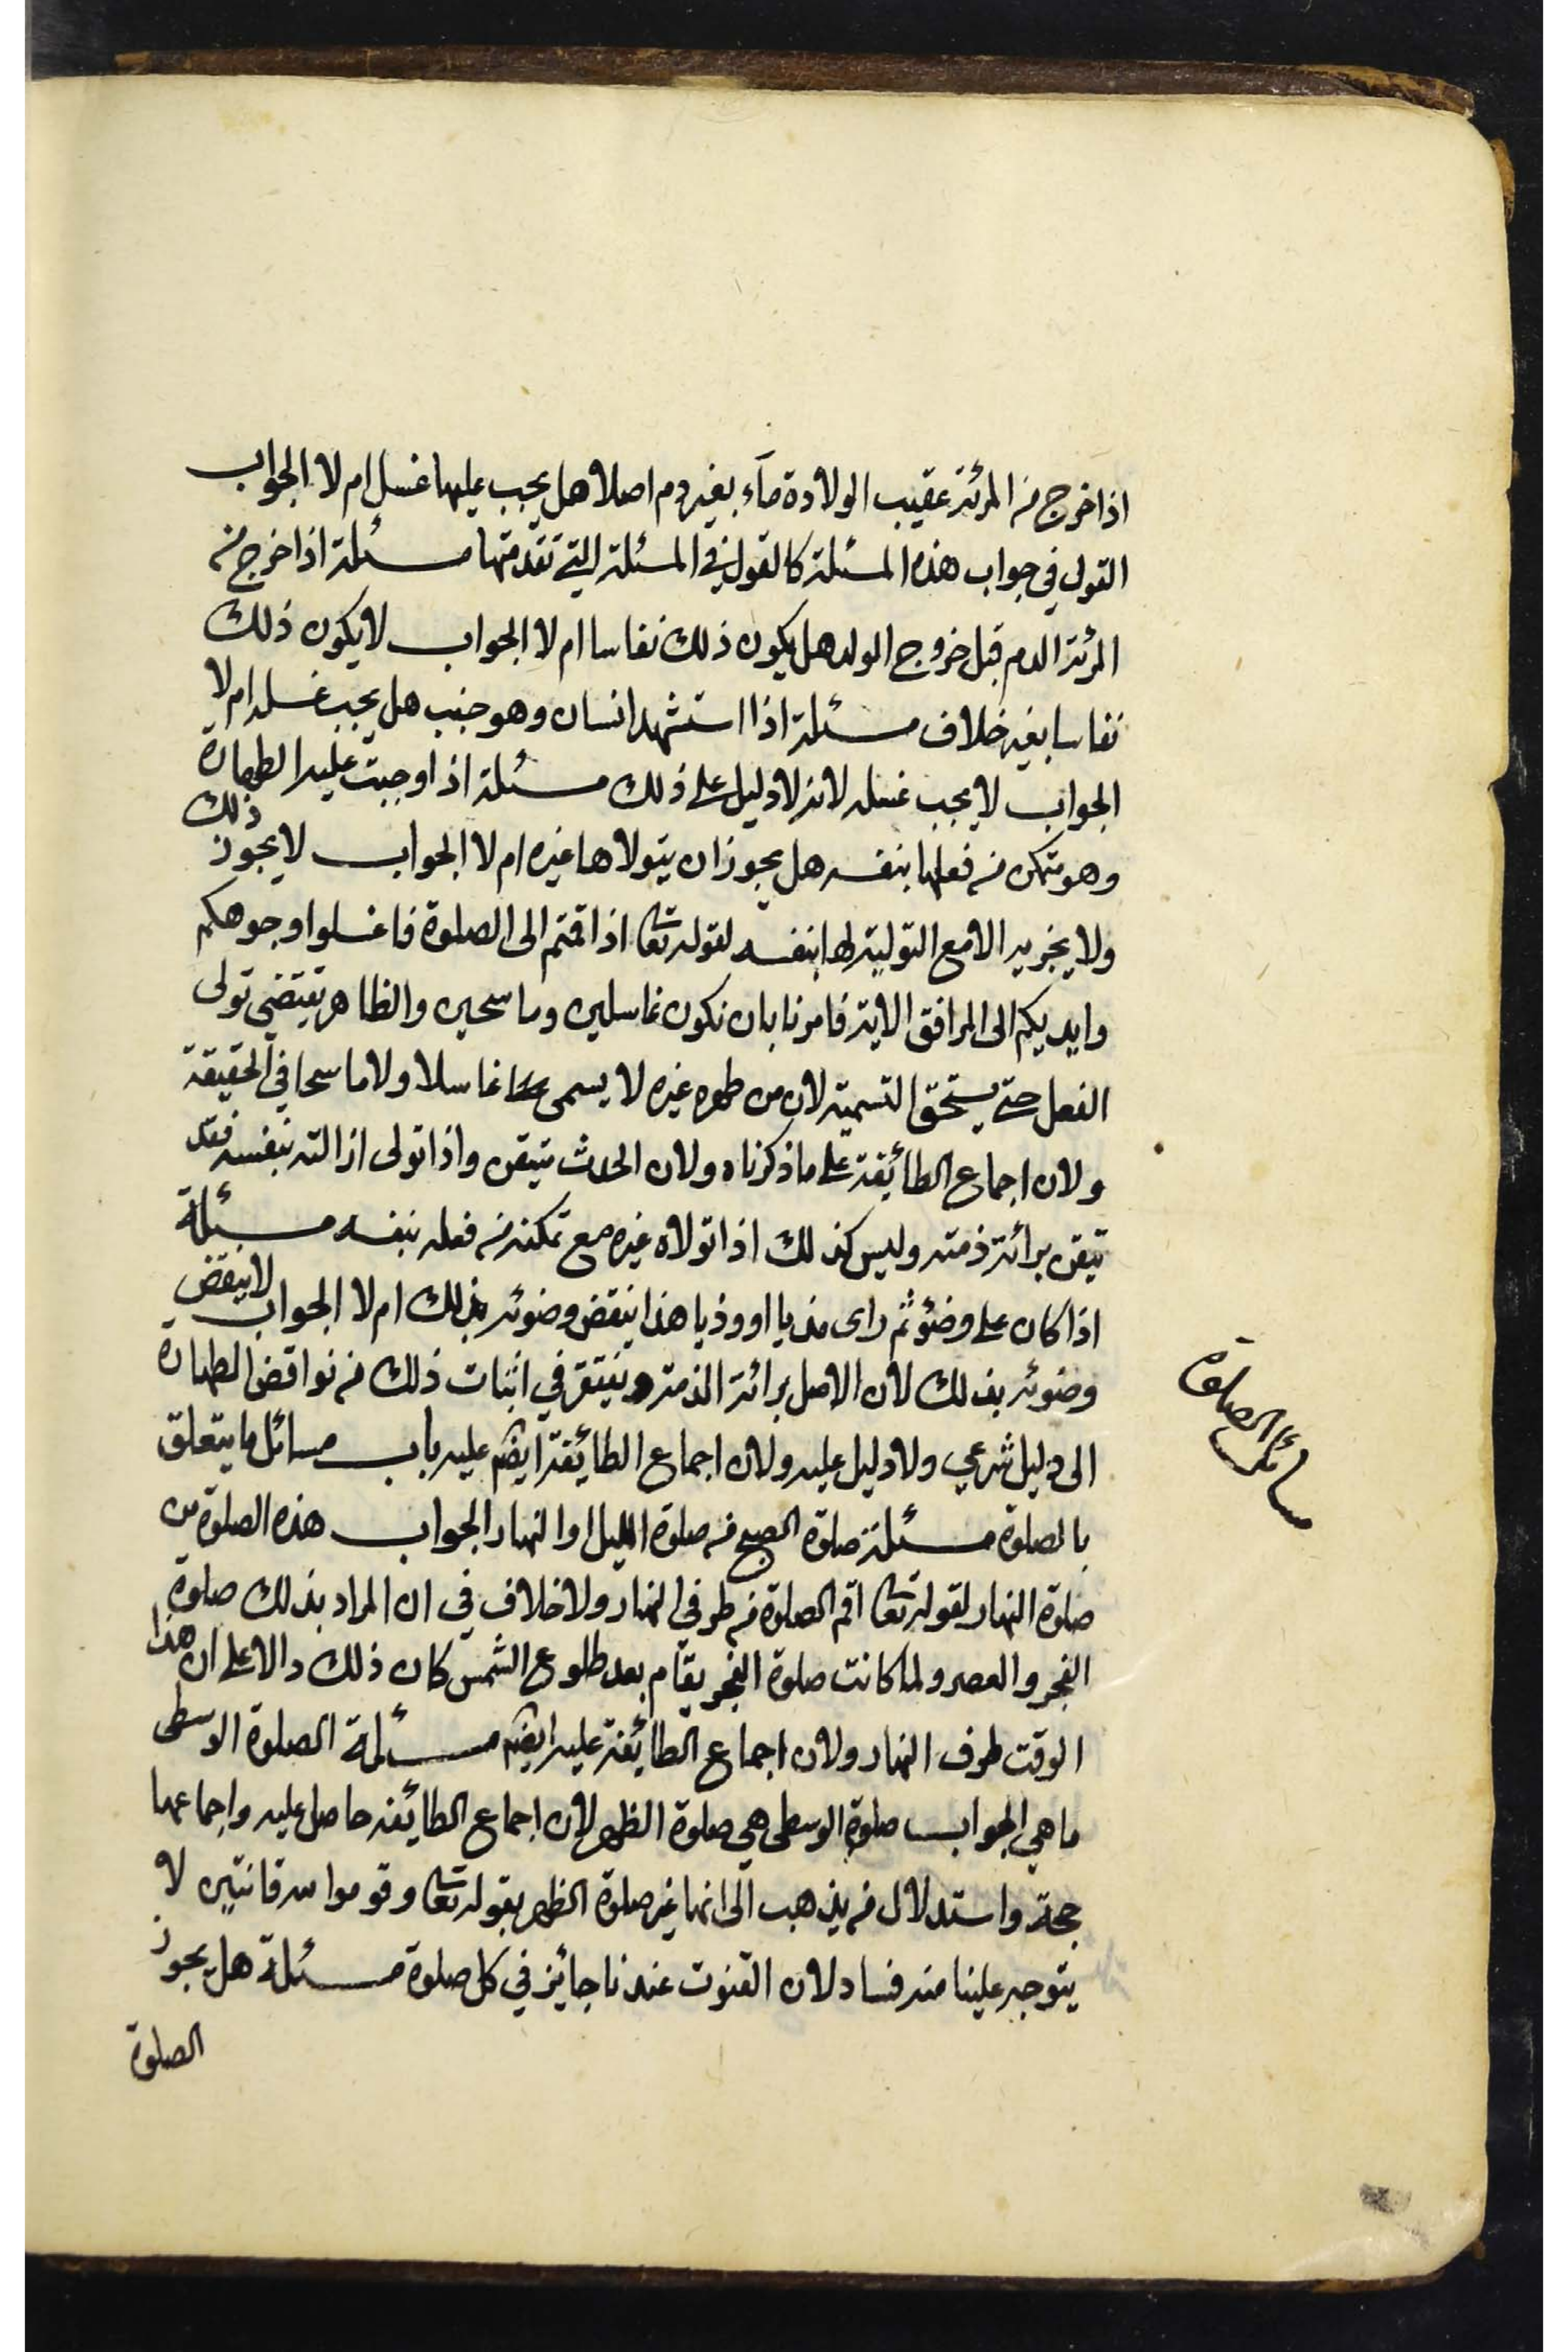 اذا خرج من المرئة عقيب الولادة مآء بغير دم اصلا هل يجب عليها غسل ام لا الجواب
القول في جواب هذه المسئلة كالقول في المسئلة التي تقدمتها مسئلة اذا خرج من
المرئة الدم قبل خروج الولد هل يكون ذلك نفاسا ام لا الجواب لا يكون ذلك
نفاسا بغير خلاف مسئلة اذا استشهد انسان وهو جنب هل يجب غسله ام لا
الجواب لا يجب غسله لانه لا دليل على ذلك مسئلة اذا وجبت عليه الطهارة
وهو متمكن من فعلها بنفسه هل يجوز ان يتولاها غيره ام لا الجواب لا يجوز ذلك
ولا يجزيه الا مع التولية لها بنفسه لقوله تعا اذا قمتم الى الصلوة فاغسلوا وجوهكم
وايديكم الى المرافق الاية فامرنا بان نكون غاسلين وماسحين والظاهر يقتضي تولى
الفعل حتى يستحق التسمية لان من طهره غيره لا يسمى غاسلا ولا ماسحا في الحقيقة
ولان اجماع الطائفة على ما ذكرناه ولان الحدث متيقن واذا تولى ازالته بنفسه فقد
تيقن برائة ذمته وليس كذلك اذا تولاه غيره مع تمكنه من فعله بنفسه مسئلة
اذا كان على وضوء ثم راى مذيا او وذيا هذا ينقض وضوئه بذلك ام لا الجواب لا ينقض
وضوئه بذلك لان الاصل برائة الذمة ونفتقر في اثبات ذلك من نواقض الطهارة
الى دليل شرعي ولا دليل عليه ولان اجماع الطائفة ايضا عليه باب مسائل ما يتعلق
بالصلوة مسئلة صلوة الصبح من صلوة الليل او النهار الجواب هذه الصلوة من
صلوة النهار لقوله تعا اقم الصلوة من طرفي النهار ولا خلاف في ان المراد بذلك صلوة
الفجر والعصر ولما كانت صلوة الفجر يقام بعد طلوع الشمس كان ذلك دالا على ان هذا
الوقت طرف النهار ولان اجماع الطائفة عليه ايضا مسئلة الصلوة الوسطى
ما هي الجواب صلوة الوسطى هي صلوة الظهر لان اجماع الطائفة حاصل عليه واجماعها
حجة واستدلال من يذهب الى انها غير صلوة الظهر بقوله تعا وقوموا لله قانتين لا
يتوجه علينا منه فساد لان القنوت عندنا جائز في كل صلوة مسئلة هل يجوز
الصلوة
مسائل الصلوة